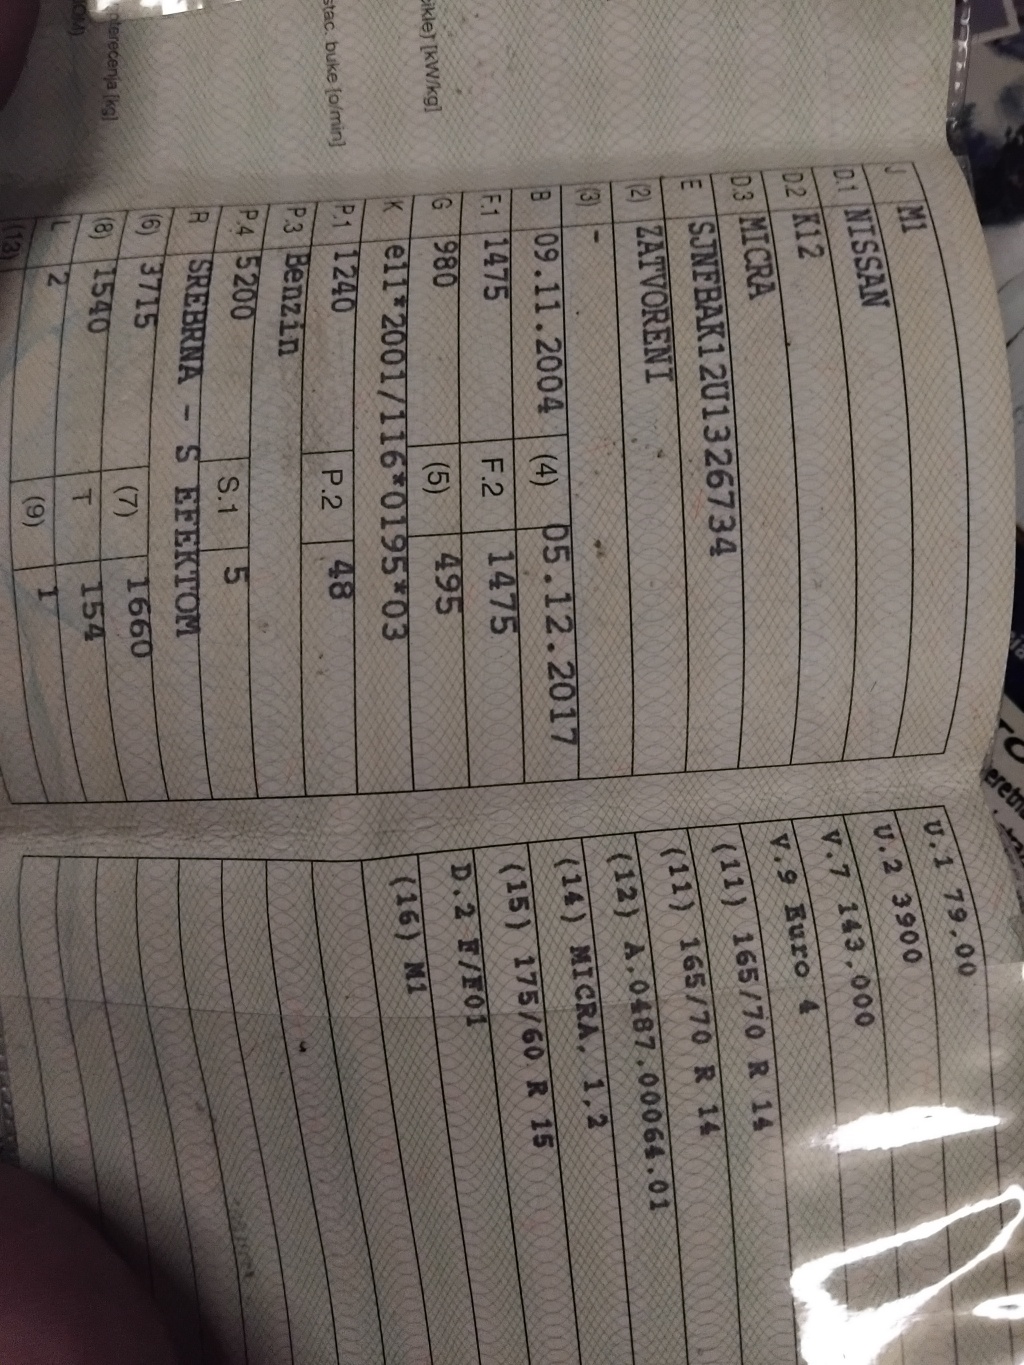 ikle) [kW/kg]
stac. buke [o/min]
terećenja [kg]
J M1
D.1 NISSAN
D.2 K12
D.3 MICRA
E SJNFBAK12U1326734
(2) ZATVORENI
(3) -
B 09.11.2004 (4) 05.12.2017
F.1 1475 F.2 1475
G 980 (5) 495
K e11*2001/116*0195*03
P.1 1240 P.2 48
P.3 Benzin
P.4 5200 S.1 5
R SREBRNA - S EFEKTOM
(6) 3715 (7) 1660
(8) 1540 T 154
L 2 (9) 1
(13)
U.1 79.00
U.2 3900
V.7 143.000
V.9 Euro 4
(11) 165/70 R 14
(11) 165/70 R 14
(12) A.0487.00064.01
(14) MICRA, 1,2
(15) 175/60 R 15
D.2 F/F01
(16) M1